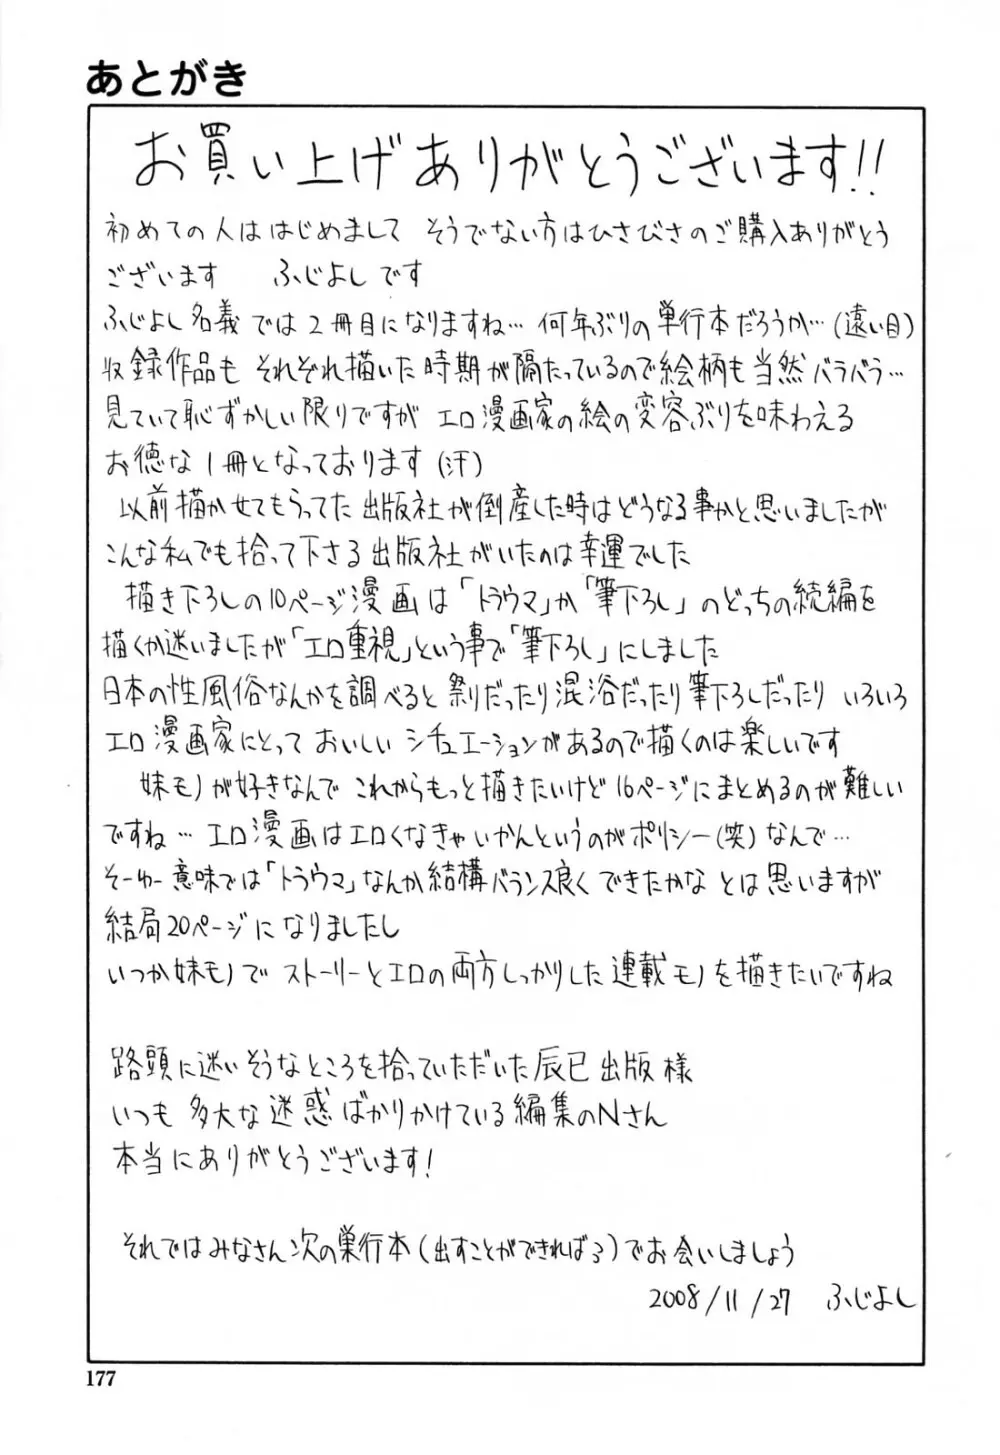 あとがき
お買い上げありがとうございます!!
初めての人ははじめまして そうでない方はひさびさのご購入ありがとう
ございます ふじよしです
ふじよし名義では2冊目になりますね…何年ぶりの単行本だろうか…(遠い目)
収録作品も それぞれ描いた時期が隔たっているので絵柄も当然バラバラ…
見ていて恥ずかしい限りですが エロ漫画家の絵の変容ぶりを味わえる
お徳な1冊となっております(汗)
以前描かせてもらってた出版社が倒産した時はどうなる事かと思いましたが
こんな私でも拾って下さる出版社がいたのは幸運でした
描き下ろしの10ページ漫画は「トラウマ」か「筆下ろし」のどっちの続編を
描くか迷いましたが「エロ重視」という事で「筆下ろし」にしました
日本の性風俗なんかを調べると祭りだったり混浴だったり筆下ろしだったり いろいろ
エロ漫画家にとって おいしい シチュエーションがあるので描くのは楽しいです
妹モノが好きなんで これからもっと描きたいけど16ページにまとめるのが難しい
ですね…エロ漫画はエロくなきゃいかんというのがポリシー(笑)なんで…
そーゆー意味では「トラウマ」なんか結構バランス良くできたかな とは思いますが
結局20ページになりましたし
いつか妹モノで ストーリーとエロの両方しっかりした連載モノを描きたいですね
路頭に迷いそうなところを拾っていただいた辰巳出版様
いつも多大な迷惑ばかりかけている編集のNさん
本当にありがとうございます!
それではみなさん次の単行本(出すことができればう)でお会いしましょう
2008/11/27 ふじよし
177